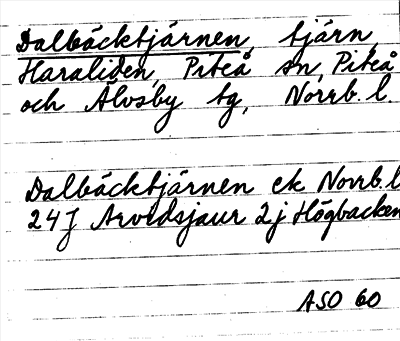 Dalbäcktjärnen, tjärn,
Haraliden, Piteå sn, Piteå
och Älvsby tg, Norrb. l.
Dalbäcktjärnen ek Norrb. l
24J Arvidsjaur 2j Högbacken
ASO 60